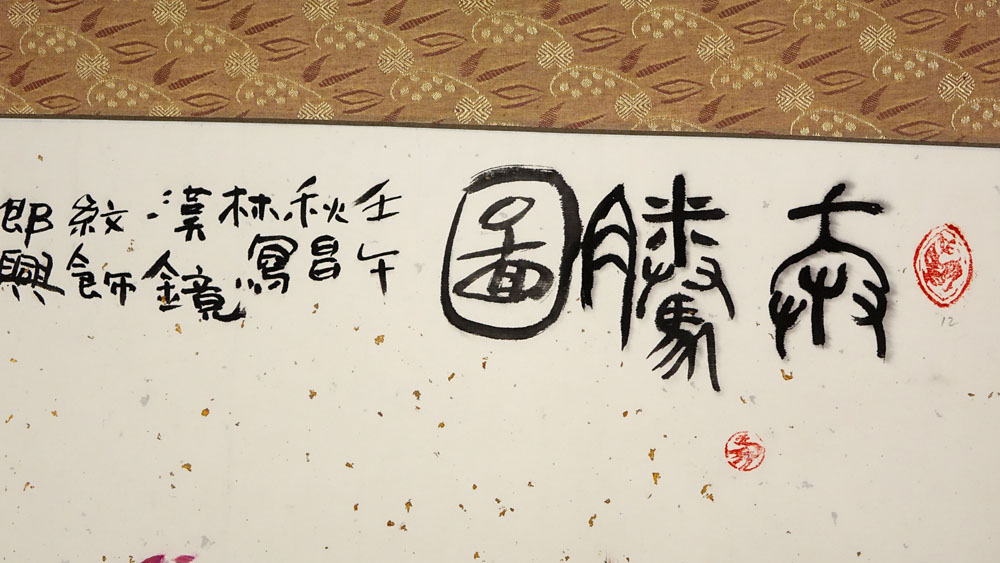 奔騰圖
壬午
秋昌
林寫
漢鏡
紋飾
即興
12